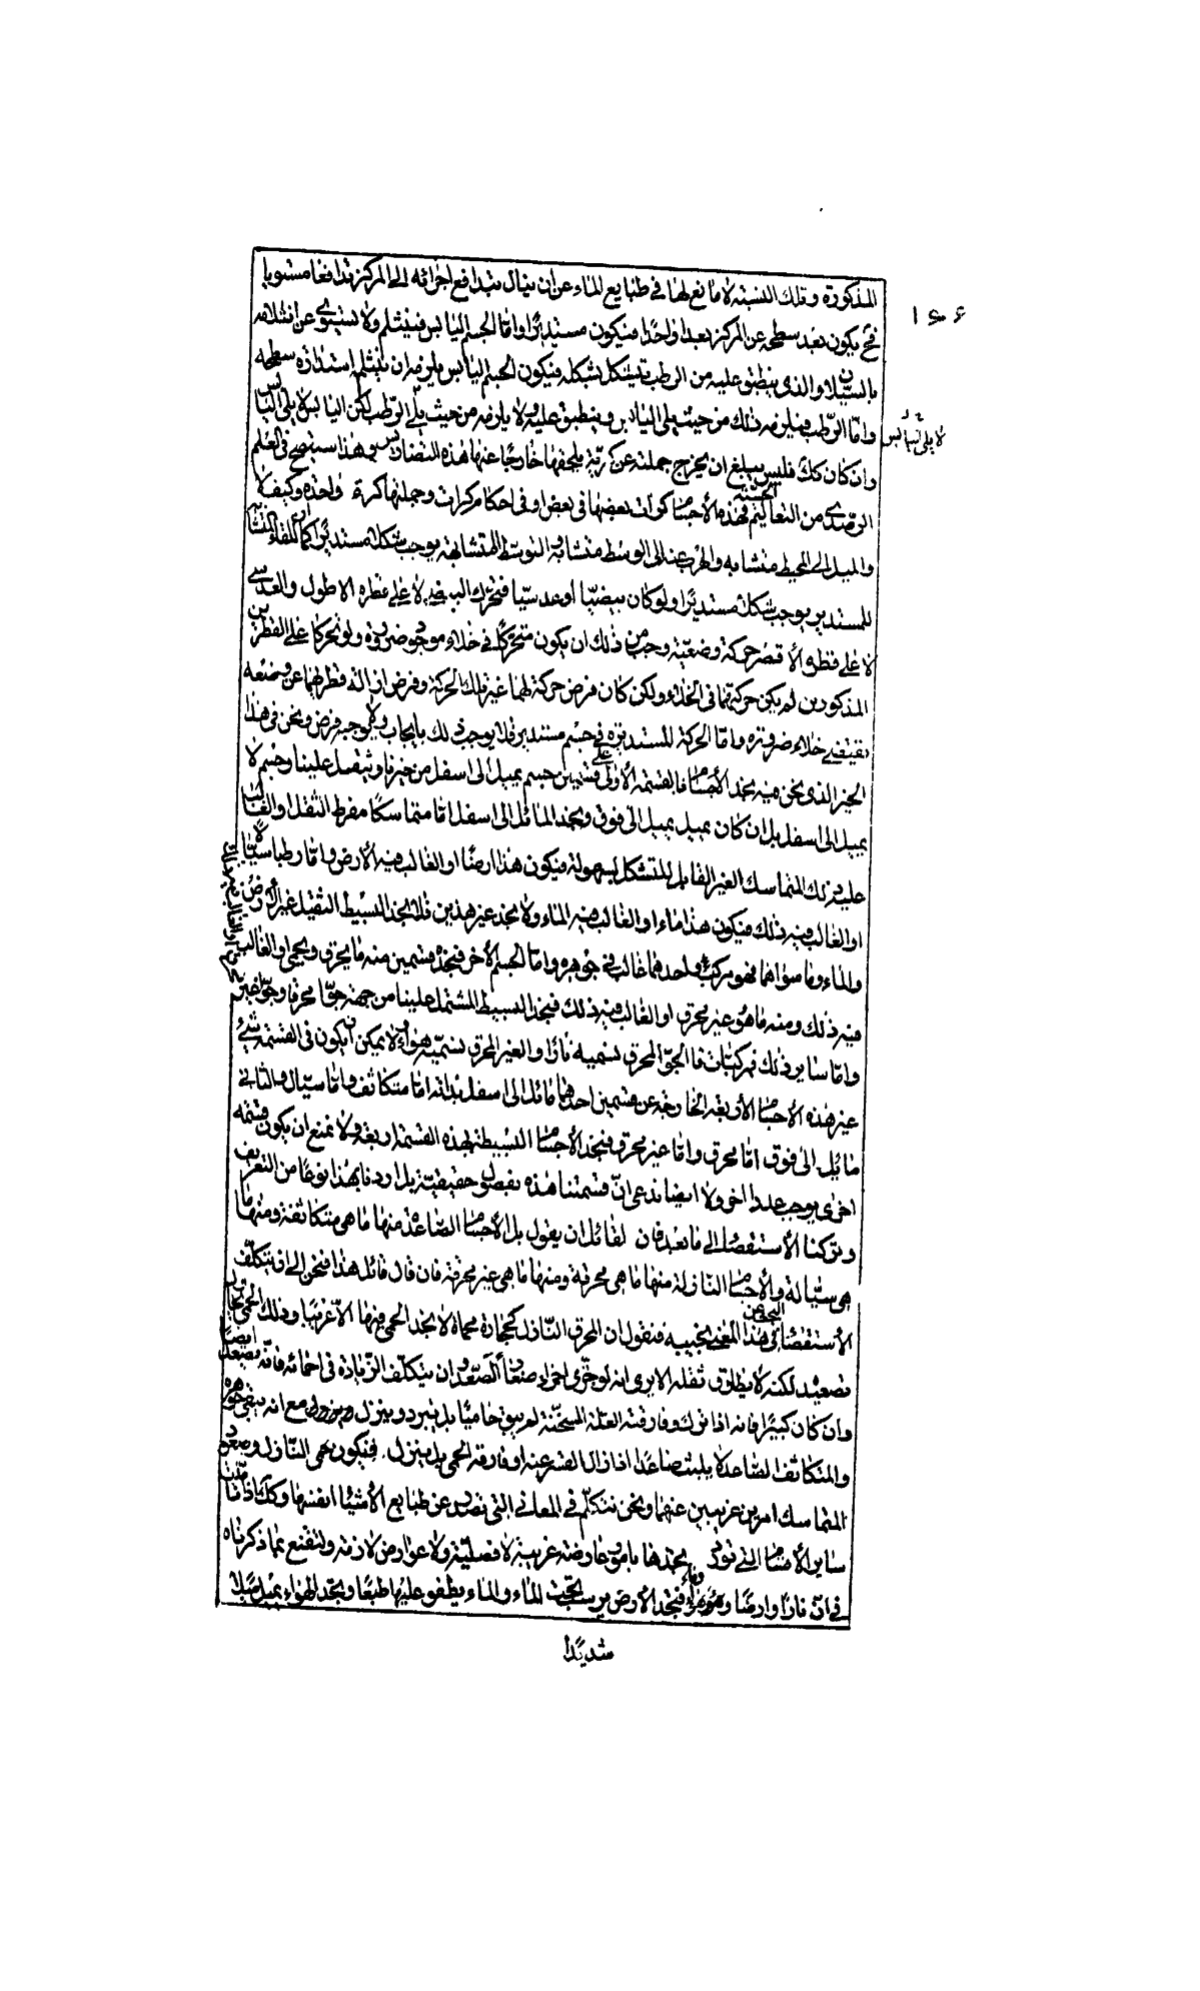 المذكورة وتلك النسبة لا مانع لها فى طبايع الماء عن ان ينال بتدافع اجزائه الى المركز تدافعا مستويا
فح يكون بعد سطحه عن المركز بعدا واحدا فيكون مستديرا واما الجسم اليابس فينثلم ولا يستوى عن انثلامه
بالسيلان والذى ينطبق عليه من الرطب يتشكل بشكله فيكون الجسم اليابس يلزمه ان ينثلم استدارة سطحه
واما الرطب فيلزمه ذلك من حيث يلى اليابس وينطبق عليه ولا يلزمه من حيث يلى الرطب لكن اليابس لا يلى اليابس
لا يلى اليابس
وان كان كك فليس يبلغ ان يخرج جملته عن كرية يلحقها خارجا عنها هذه التضاريس وهذا سيتضح فى العلم
الرصدى من التعاليم فهذه الأجسام كرات بعضها فى بعض او فى احكام كرات وجملتها كرة واحدة وكيف لا
والميل الى المحيط متشابه والهرب عنه الى الوسط متشابه والتوسط المتشابه يوجب شكلا مستديرا كما ان اللقاء المتشابه
للمستدير يوجب شكلا مستديرا ولو كان بيضيا او عدسيا فتحرك البيضى لا على قطره الاطول والعدسى
لا على قطره الأقصر حركة وضعية وجب من ذلك ان يكون متحركا فى خلاء موجود ضرورة ولو تحركا على القطرين
المذكورين لم يكن حركتهما فى الخلاء ولكن كان فرض حركة لهما غير تلك الحركة وفرض ازالة قطرهما عن وضعه
يقتضى خلاء ضرورة واما الحركة المستديرة فى جسم مستدير فلا يوجب ذلك بايجاب ولا يوجبه فرض ونحن فى هذا
الحيز الذى نحن فيه نجد الأجسام بالقسمة الأولى على قسمين جسم يميل الى اسفل من حيزنا ويثقل علينا وجسم لا
يميل الى اسفل بل ان كان يميل يميل الى فوق ونجد المائل الى اسفل اما متماسكا مفرط الثقل او الغالب
عليه تلك المتماسك الغير القابل للتشكل بسهولة فيكون هذا ارضا او الغالب فيه الأرض واما رطبا سيالا
او الغالب فيه ذلك فيكون هذا ماء او الغالب فيه الماء ولا نجد غير هذين فلا نجد البسيط الثقيل غير الأرض
والماء وما سواهما فهو مركب واحدهما غالب فى جوهره واما الجسم الأخر فنجد قسمين منه ما يحرق ويحمى او الغالب
فيه ذلك ومنه ما هو غير محرق او الغالب فيه ذلك فنجد البسيط المشتمل علينا من جهة جوا محرقا وجوا غير
واما ساير ذلك فمركبات فالجو المحرق نسميه نارا والغير المحرق نسميه هواء ولا يمكن ان يكون فى القسمة شئ
غير هذه الأجسام الأربعة الخارجة عن قسمين احدهما مائل الى اسفل بذاته اما متكاثف واما سيال والثانى
مائل الى فوق اما محرق واما غير محرق فنجد الأجسام البسيطة بهذه القسمة اربعة ولا نمنع ان يكون قسمة
اخرى يوجب عددا اخر ولا ايضا ندعى ان قسمتنا هذه بفصول حقيقية بل اردنا بهذا نوعا من التعريف
وتركنا الأستقصاء الى ما بعد فان لقائل ان يقول بل الأجسام الصاعدة منها ما هى متكاثفة ومنها ما
هى سيالة والأجسام النازلة منها ما هى محرقة ومنها ما هى غير محرقة فان قال قائل هذا فنحن الى ان يتكلف
الأستقصاء فى البحث عن هذا المعنى نجيبه فنقول ان المحرق النازل كحجارة محماة لا نجد الحمى فيها الا غريبا وذلك الحمى يحاول
تصعيد لكنه لا يطاوق ثقله الا يرى انه لو جزى اجزاء صغارا لصعد وان يتكلف الزيادة فى احمائه فانه يصعد ايضا
وان كان كبيرا فانه اذا ترك وفارقته العلة المسخنة لم يبق حاميا بل يبرد وينزل مع انه يبقى جوهره
والمتكاثف الصاعد لا يلبث صاعدا اذا زال القسر عنه او فارقه الحمى بل ينزل فيكون حمى النازل وصعود
المتماسك امرين غريبين عنهما ونحن نتكلم فى المعانى التى تصدر عن طبايع الأشياء انفسها وكك اذا تاملت
ساير الأقسام التى تورد يجدها بامور عارضة غريبة لا فصلية ولا عوارض لازمة ولنقنع بما ذكرناه
فى ان نارا وارضا وماء وهواء فنجد الأرض يرسب تحت الماء والماء يطفو عليها طبعا ونجد الهواء يميل ميلا
شديدا